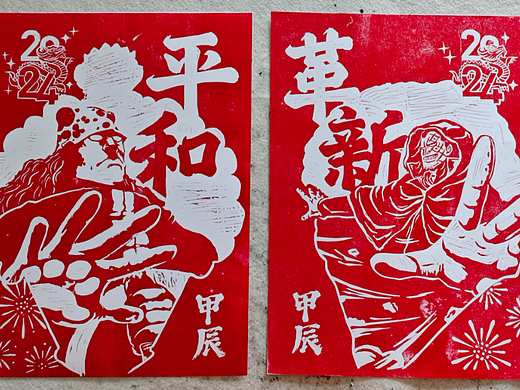 2024
平和
甲辰
2024
革新
甲辰